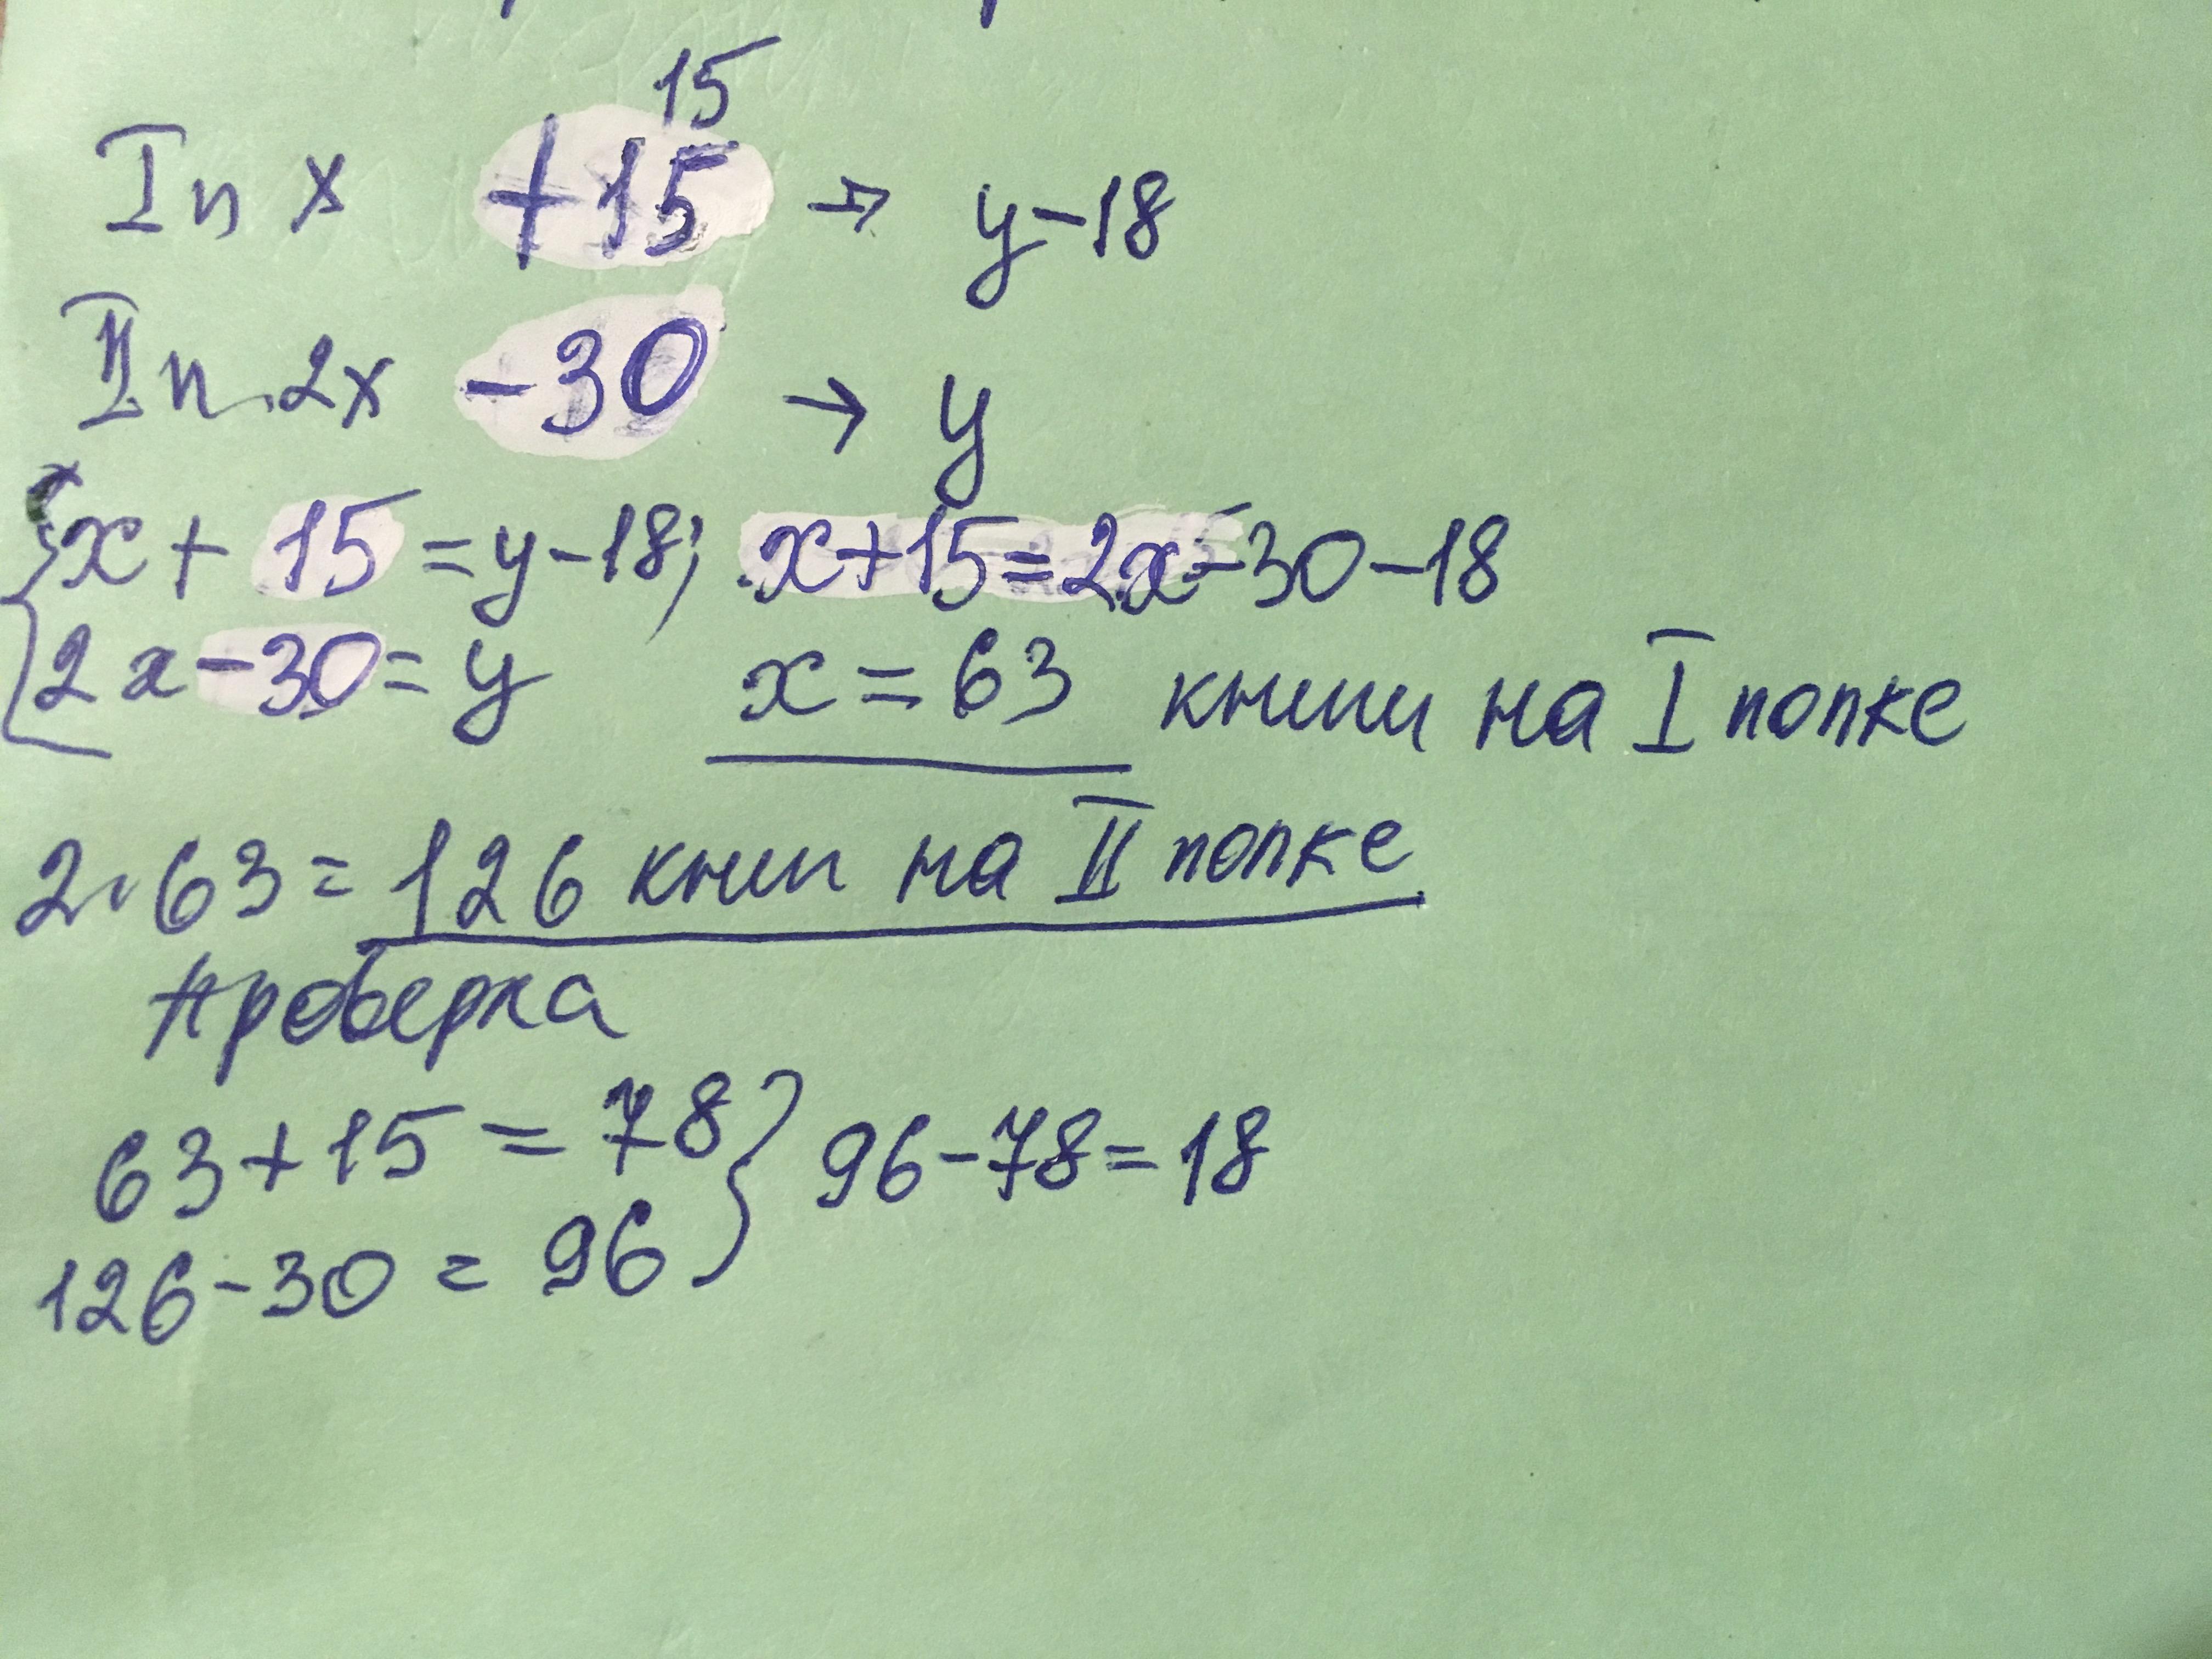 15
I п x +15 → y-18
II п. 2x -30 → y
x + 15 = y-18; x+15=2x-30-18
2x-30= y x = 63 книги на I полке
2·63= 126 книг на II полке
Проверка
63+15 = 78 } 96-78=18
126-30 = 96